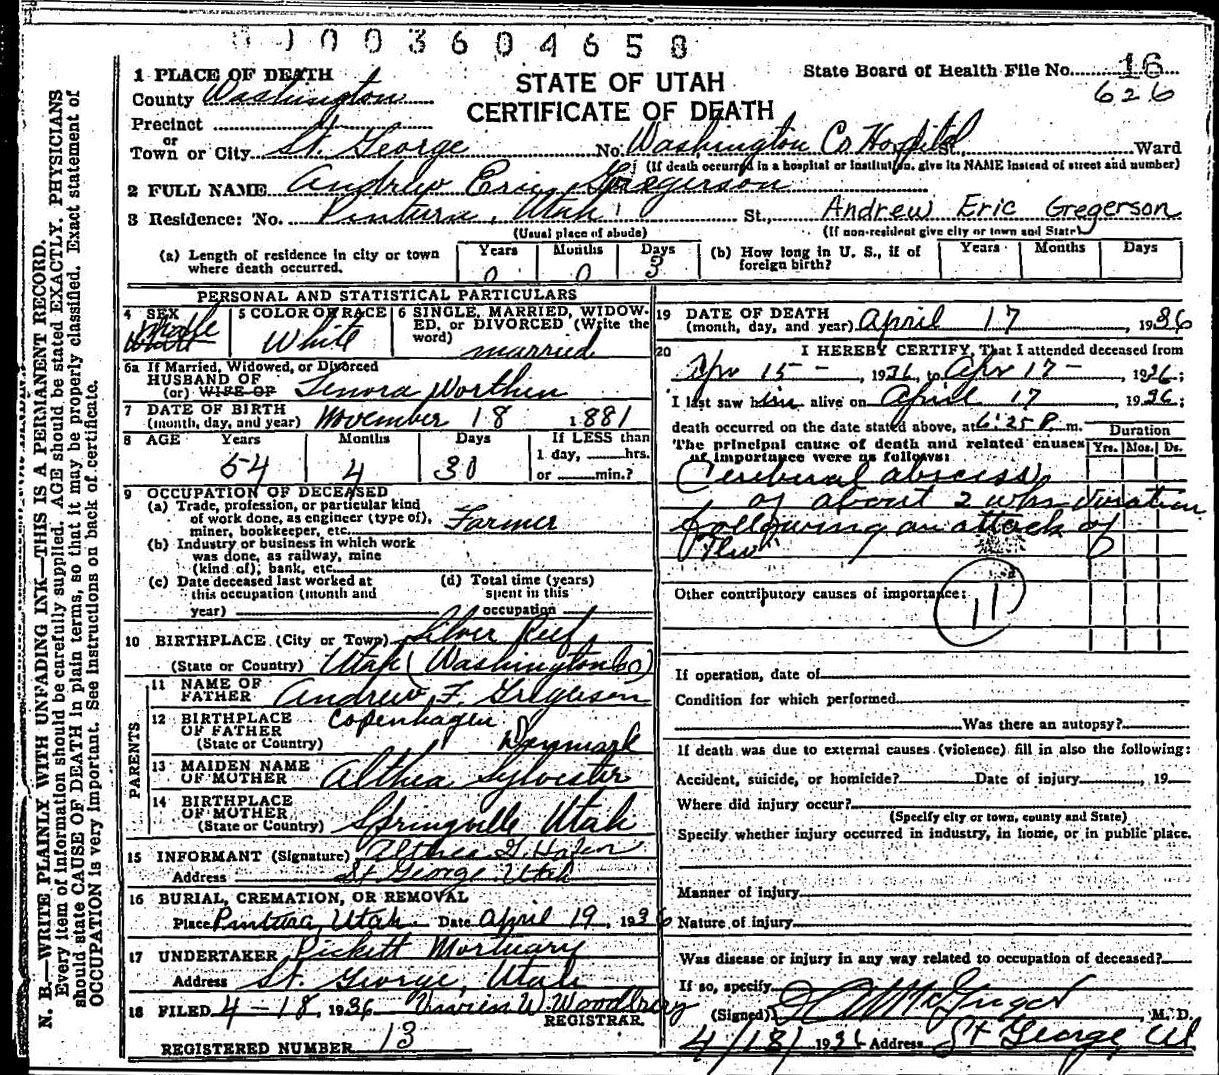 0 1 0 0 3 6 0 4 6 5 8
STATE OF UTAH
CERTIFICATE OF DEATH
State Board of Health File No. 16
626
1 PLACE OF DEATH
County Washington
Precinct
or
Town or City St. George No. Washington Co Hospital St., Ward
(If death occurred in a hospital or institution, give its NAME instead of street and number)
2 FULL NAME Andrew Eric Gregerson
3 Residence: No. Pintura, Utah St., Andrew Eric Gregerson
(Usual place of abode) (If non-resident give city or town and State)
(a) Length of residence in city or town where death occurred. Years 0 Months 0 Days 3
(b) How long in U. S., if of foreign birth? Years Months Days
PERSONAL AND STATISTICAL PARTICULARS
4 SEX Male
5 COLOR OR RACE White
6 SINGLE, MARRIED, WIDOWED, or DIVORCED (Write the word) married
6a If Married, Widowed, or Divorced
HUSBAND OF
(or) WIFE OF Lenora Worthen
7 DATE OF BIRTH
(month, day, and year) November 18 1881
8 AGE Years 54 Months 4 Days 30 If LESS than
1 day, hrs.
or min.?
9 OCCUPATION OF DECEASED
(a) Trade, profession, or particular kind
of work done, as engineer (type of),
miner, bookkeeper, etc. Farmer
(b) Industry or business in which work
was done, as railway, mine
(kind of), bank, etc.
(c) Date deceased last worked at
this occupation (month and
year)
(d) Total time (years)
spent in this
occupation
10 BIRTHPLACE (City or Town) Silver Reef,
(State or Country) Utah (Washington Co)
PARENTS
11 NAME OF
FATHER Andrew F. Gregerson
12 BIRTHPLACE
OF FATHER
(State or Country) Copenhagen Denmark
13 MAIDEN NAME
OF MOTHER Althea Sylvester
14 BIRTHPLACE
OF MOTHER
(State or Country) Springville, Utah
15 INFORMANT (Signature) Althea G. Hafen
Address St George Utah
16 BURIAL, CREMATION, OR REMOVAL
Place Pintura, Utah Date April 19, 1936
17 UNDERTAKER Pickett Mortuary
Address St. George, Utah
18 FILED 4-18, 1936 Vivien W. Woodbury
REGISTRAR.
REGISTERED NUMBER 13
19 DATE OF DEATH
(month, day, and year) April 17, 1936
20 I HEREBY CERTIFY, That I attended deceased from
Apr 15-, 1936, to Apr 17-, 1936;
I last saw him alive on April 17, 1936;
death occurred on the date stated above, at 6:25 P. m.
The principal cause of death and related causes
of importance were as follows:
Duration
Yrs. Mos. Ds.
Cerebral abscess
of about 2 wks duration
following an attack of
"Flu"
Other contributory causes of importance:
11
If operation, date of
Condition for which performed
Was there an autopsy?
If death was due to external causes (violence) fill in also the following:
Accident, suicide, or homicide? Date of injury , 19
Where did injury occur?
(Specify city or town, county and State)
Specify whether injury occurred in industry, in home, or in public place.
Manner of injury
Nature of injury
Was disease or injury in any way related to occupation of deceased?
If so, specify
(Signed) McGregor, M. D.
4/18/1936 Address St George, Ut
N. B.—WRITE PLAINLY WITH UNFADING INK—THIS IS A PERMANENT RECORD.
Every item of information should be carefully supplied. AGE should be stated EXACTLY. PHYSICIANS
should state CAUSE OF DEATH in plain terms, so that it may be properly classified. Exact statement of
OCCUPATION is very important. See instructions on back of certificate.